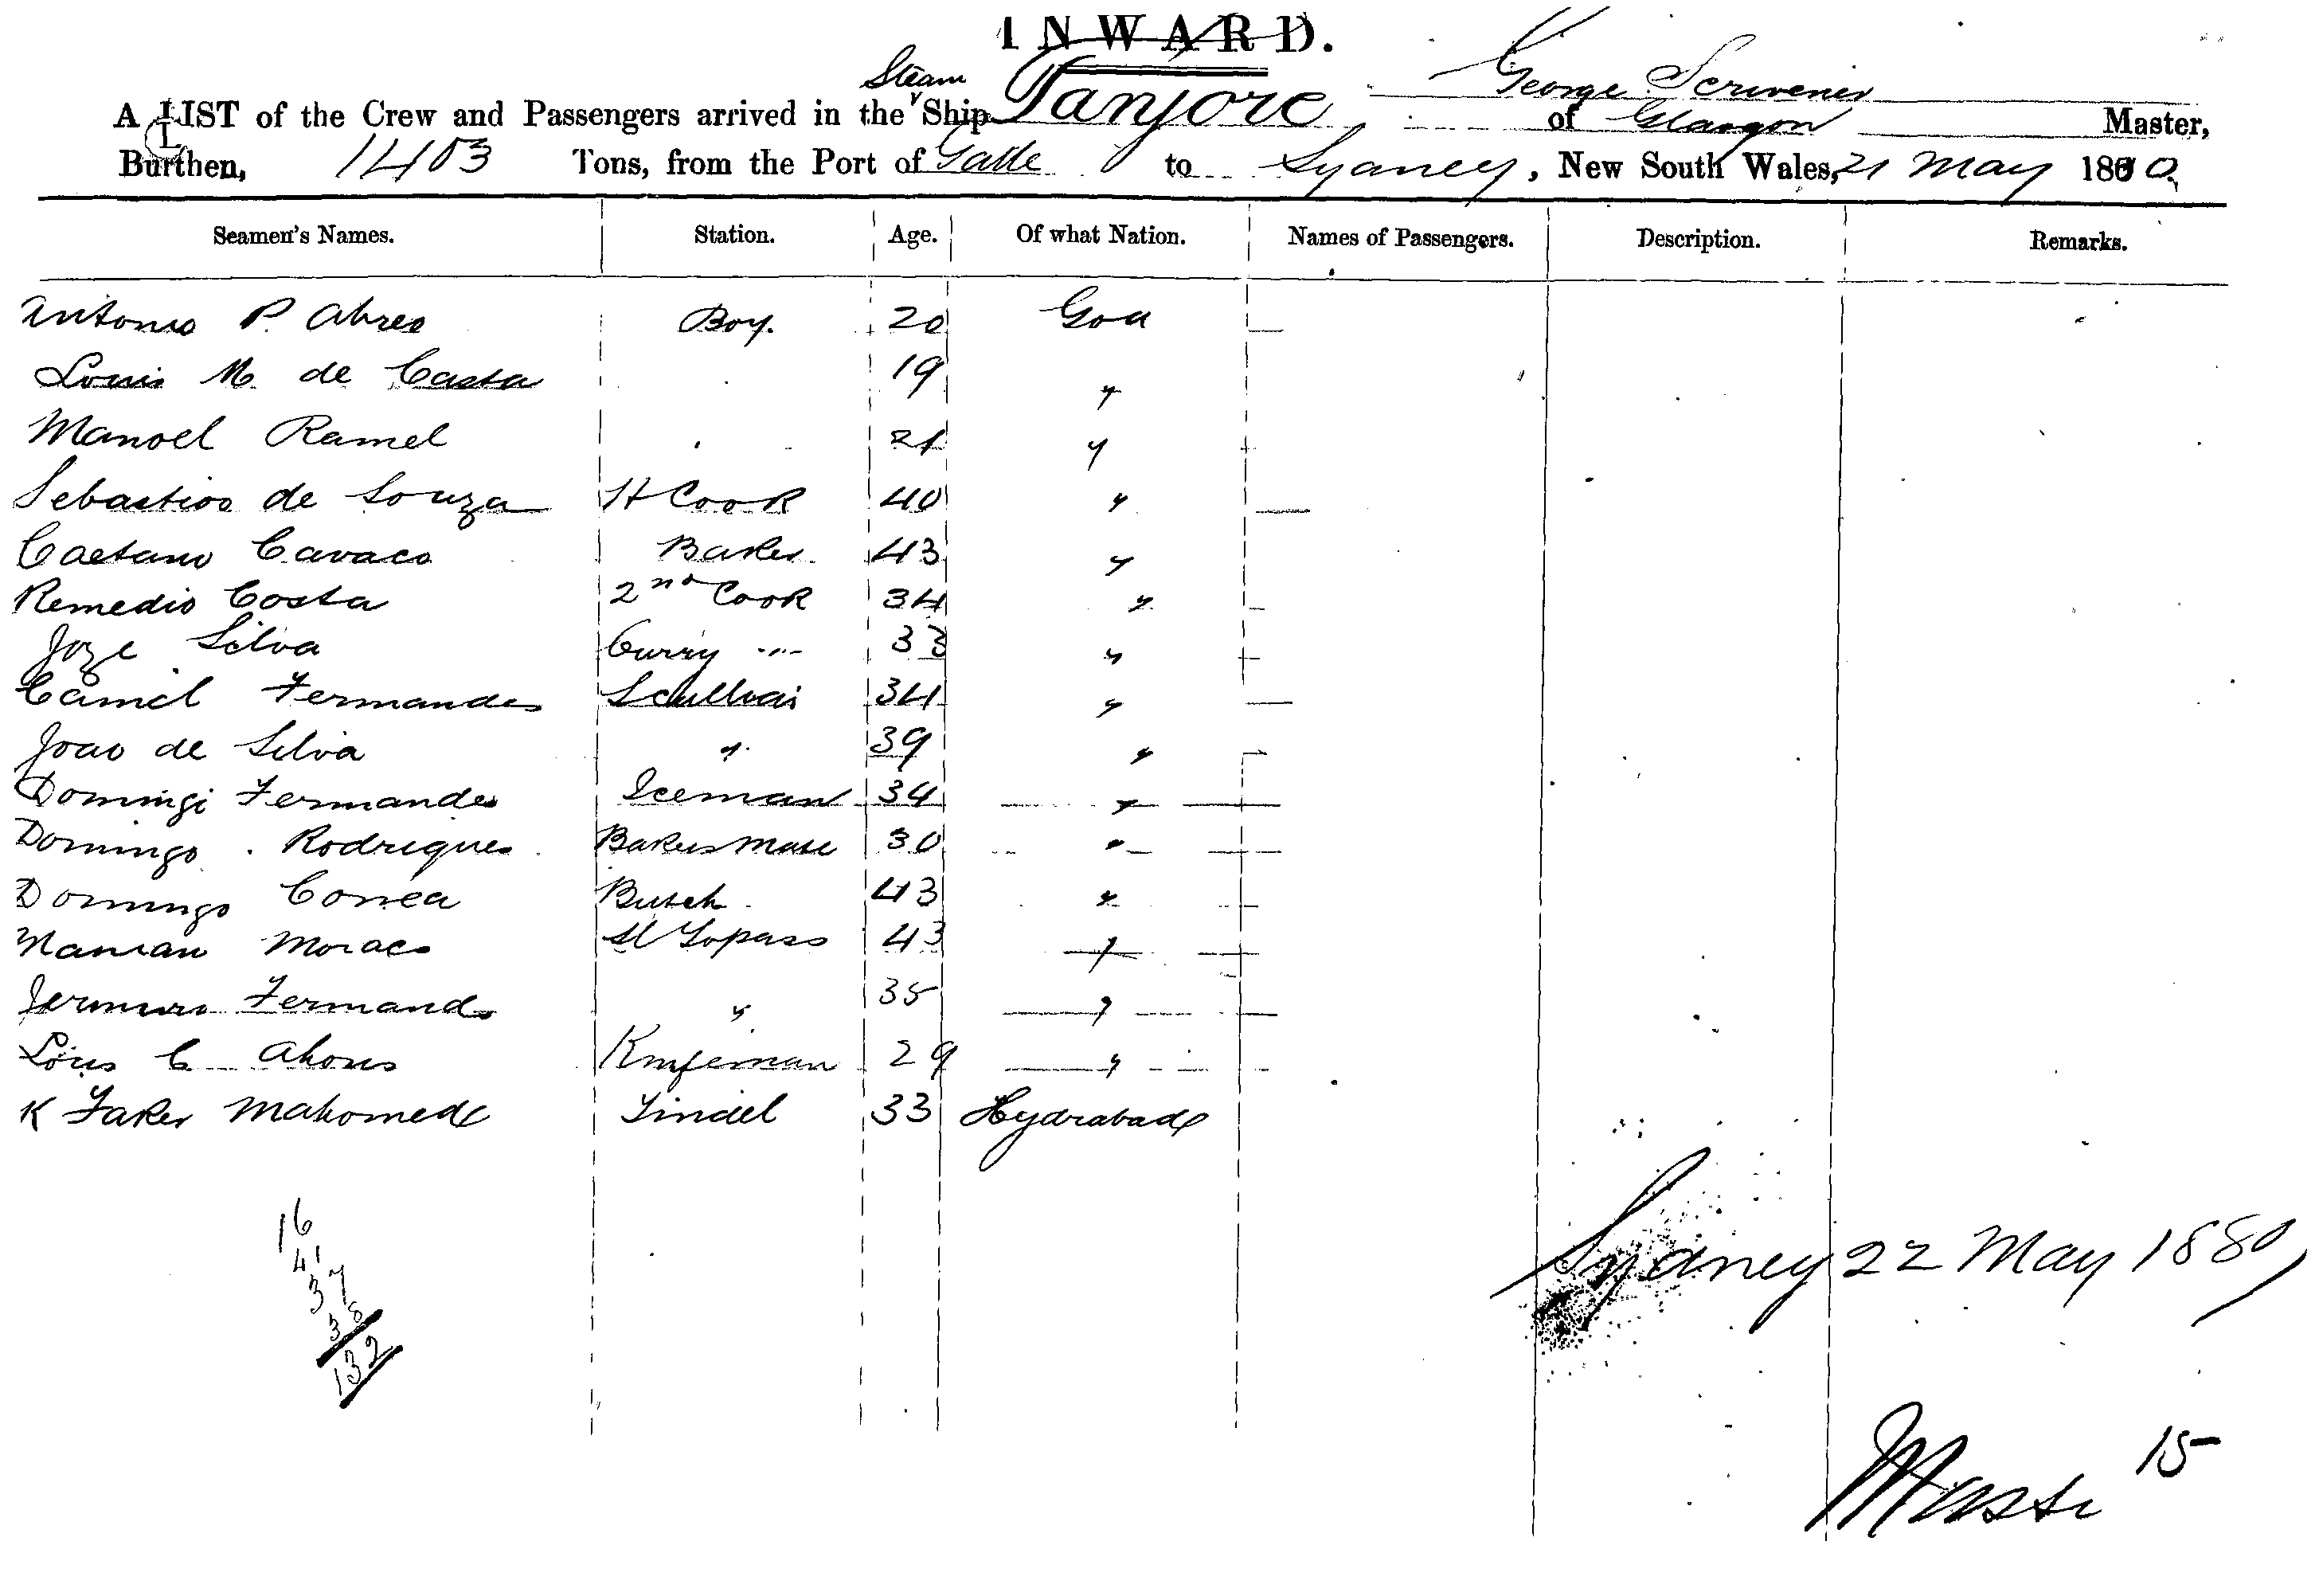 INWARD.
George Scrivener
A LIST of the Crew and Passengers arrived in the Steam Ship Tanjore of Glasgow Master,
Burthen, 1403 Tons, from the Port of Galle to Sydney, New South Wales, 21 May 1880
Seamen's Names. Station. Age. Of what Nation. Names of Passengers. Description. Remarks.
Antonio P. Abreo Boy. 20 Goa
Louis M. de Casta 19 "
Manoel Ramel 21 "
Sebastiao de Souza Cook 40 "
Caetano Cavaco Baker 43 "
Remedio Costa 2nd Cook 34 "
Joze Silva Curry " 33 "
Camel Fernandes 34 "
Joao de Silva " 39 "
Domingi Fernandes Iceman 34 "
Domingo Rodrigues Bakers Mate 30 "
Domingo Correa Butch 43 "
Moraes Topass 43 "
Fernand " 35 "
Louis C 29 "
K Faker Mahomed Tindel 33 Hydrabad
16
41
37
38
132
Sydney 22 May 1880
15